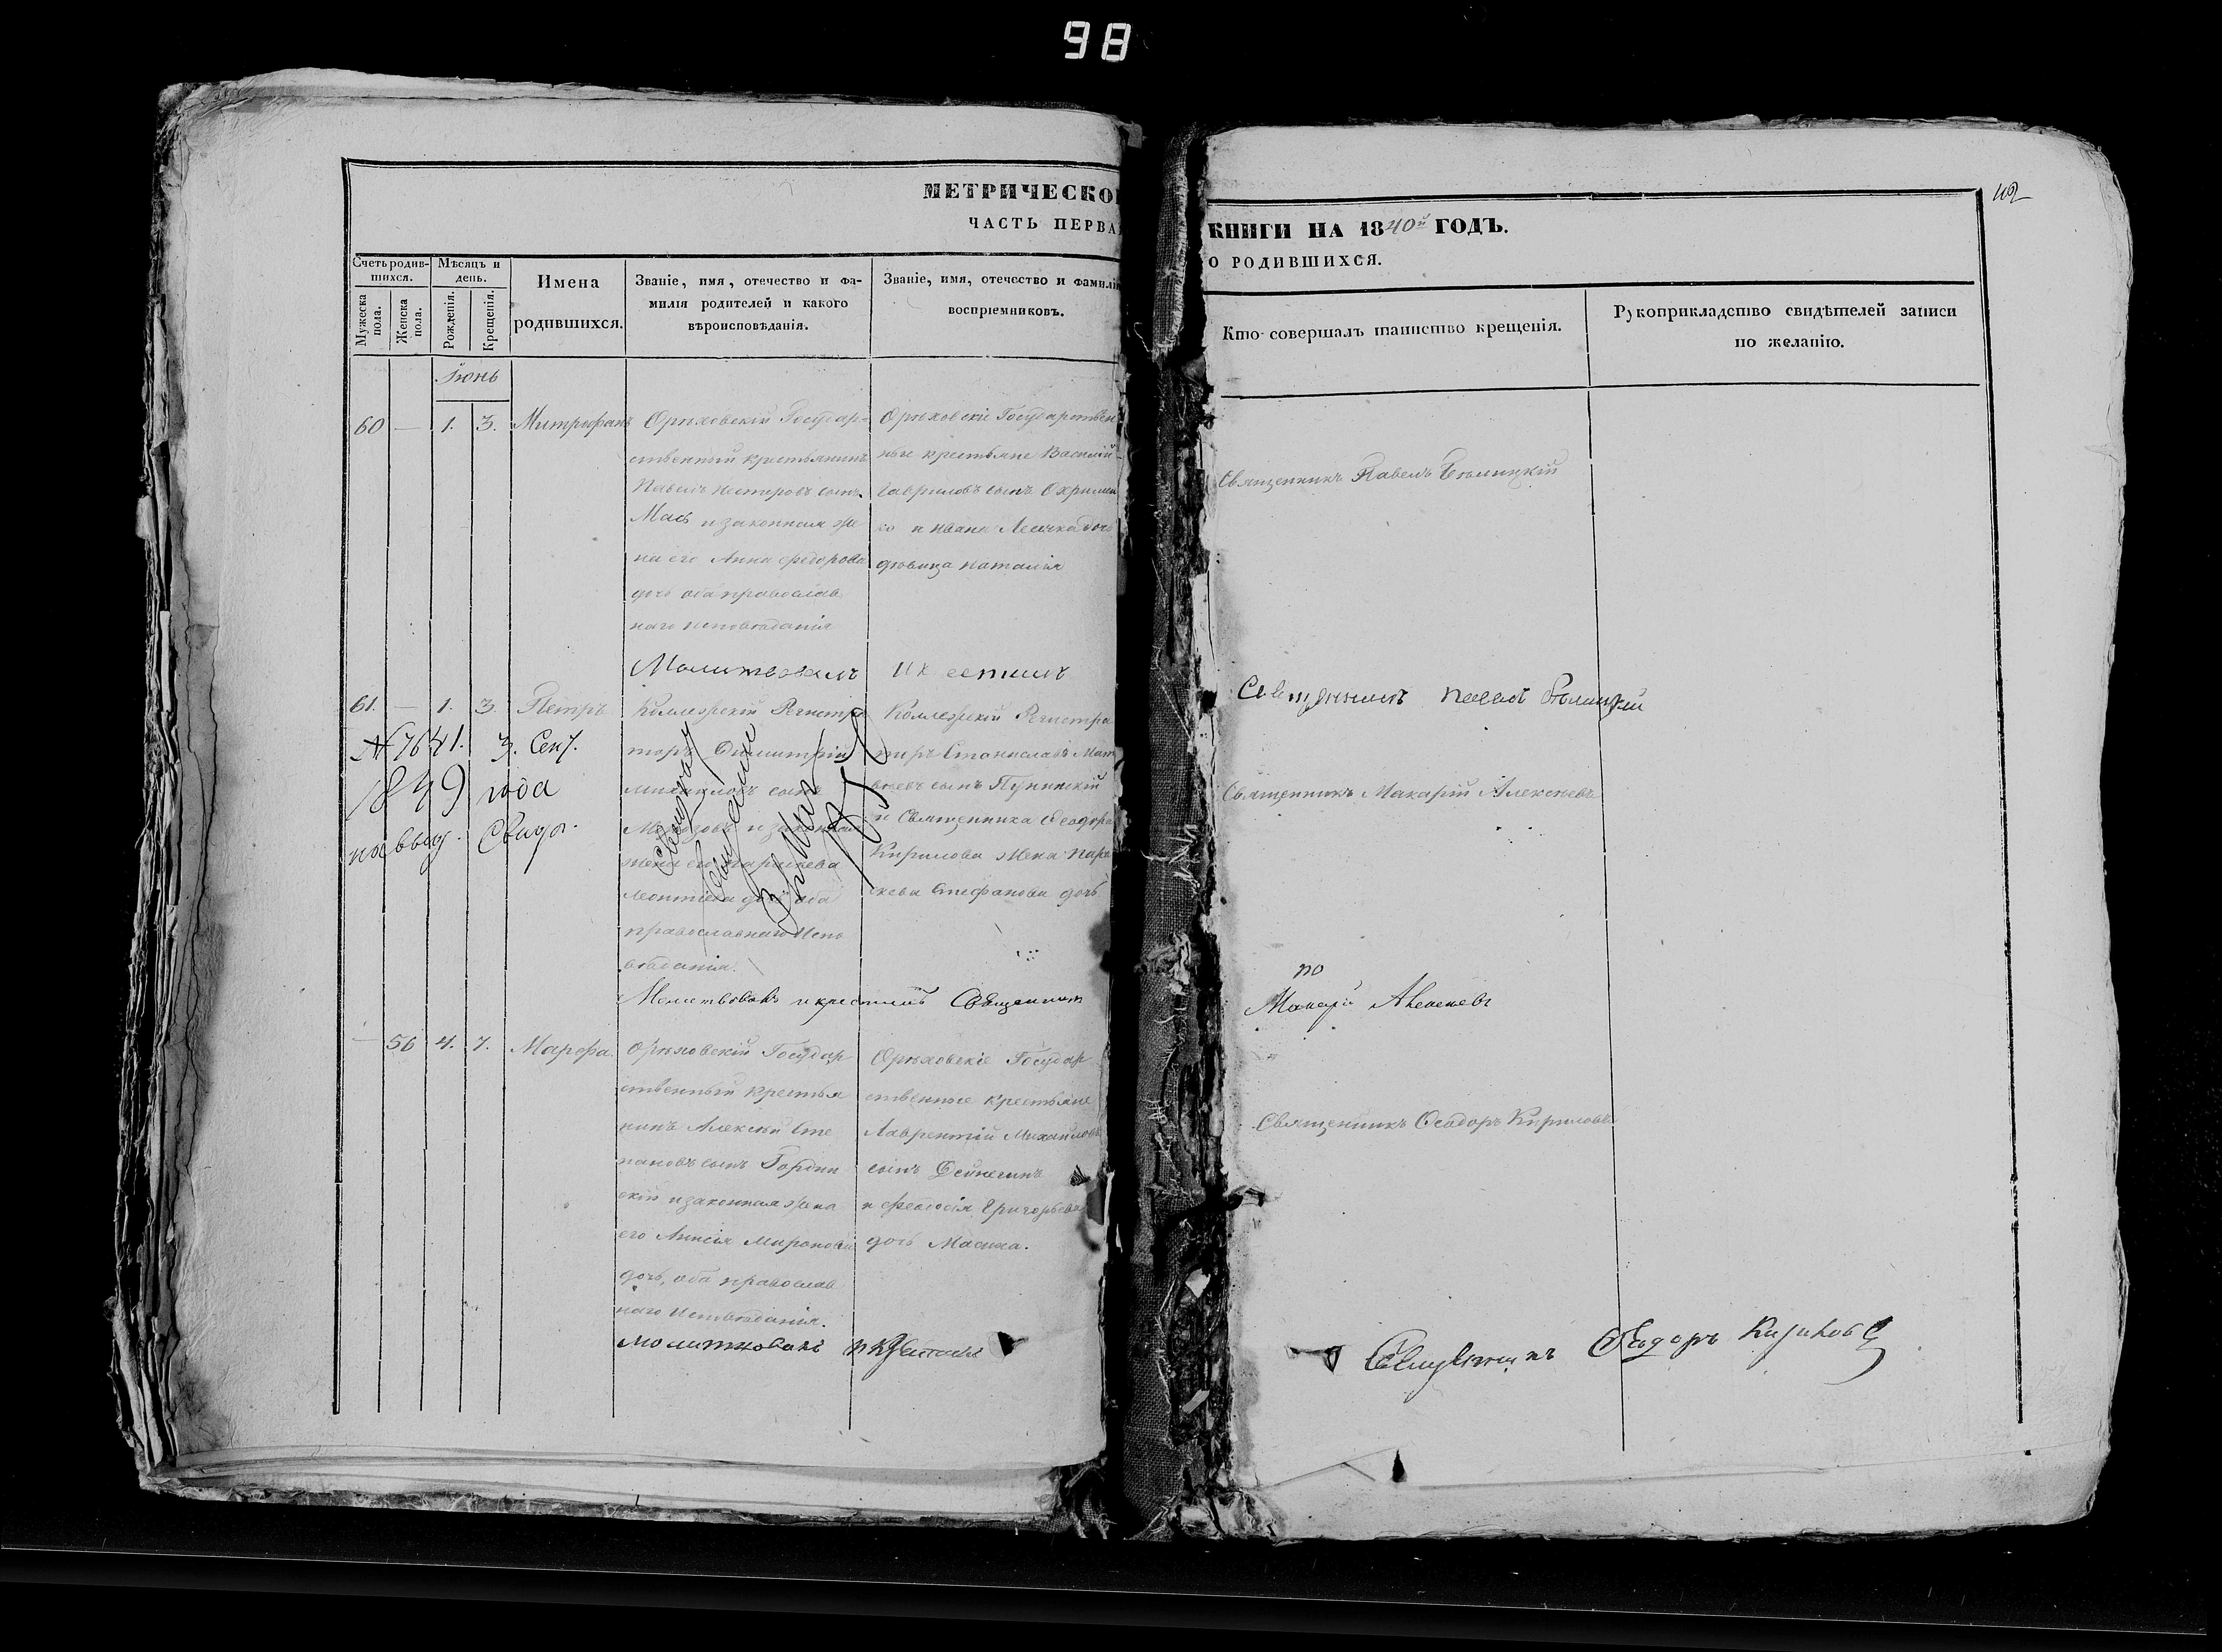 98
102
МЕТРИЧЕСКО
КНИГИ НА 1840й ГОДЪ.
ЧАСТЬ ПЕРВА
О РОДИВШИХСЯ.
Счетъ родив-
шихся.
Мужеска
пола.
Женска
пола.
Мѣсяцъ и
день.
Рожденія.
Крещенія.
Имена
родившихся.
Званіе, имя, отечество и фа-
милія родителей и какого
вѣроисповѣданія.
Званіе, имя, отечество и фамилі
воспріемниковъ.
Кто совершалъ таинство крещенія.
Рукоприкладство свидѣтелей записи
по желанію.
Іюнь
60 — 1. 3. Митрофанъ
Орѣховскій Государ-
ственный крестьянинъ
Павелъ Нестеровъ сынъ
Мась и законная же
на его Анна Федорова
дочь оба православ
наго исповѣданія
Орѣховскіе Государствен
ные крестьяне Василій
Гавриловъ сынъ Охримен
ко и Ивана дочь
дѣвица Наталія
Священникъ Павелъ Бѣлицкій
Молитвовалъ и крестилъ
Священникъ Павелъ Бѣлицкій
61. — 1. 3. Петръ
№ 7641. 3. Сент.
1849 года
на выд. Свид.
Коллежскій Регистра
торъ Димитрій
Михайловъ сынъ
и законная
жена его Параскева
Леонтіева дочь оба
православнаго испо
вѣданія.
Коллежскій Регистра
торъ Станиславъ Мат
вѣевъ сынъ
и Священника Ѳеодора
Кирилова жена Пара
скева Стефанова дочь
Священникъ Макарій Алексѣевъ
Молитвовалъ и крестилъ Священникъ
Макарій Алексѣевъ
— 56 4. 7. Марфа.
Орѣховскій Государ
ственный крестья
нинъ Алексѣй Сте
пановъ сынъ Гордин
скій и законная жена
его Анисія Миронова
дочь, оба православ
наго исповѣданія.
Орѣховскіе Государ
ственные крестьяне
Лаврентій Михайловъ
сынъ Дейнегинъ
и Феодосія Григорьева
дочь Масика.
Священникъ Ѳеодоръ Кириловъ
Молитвовалъ и крестилъ
Священникъ Ѳеодоръ Кириловъ